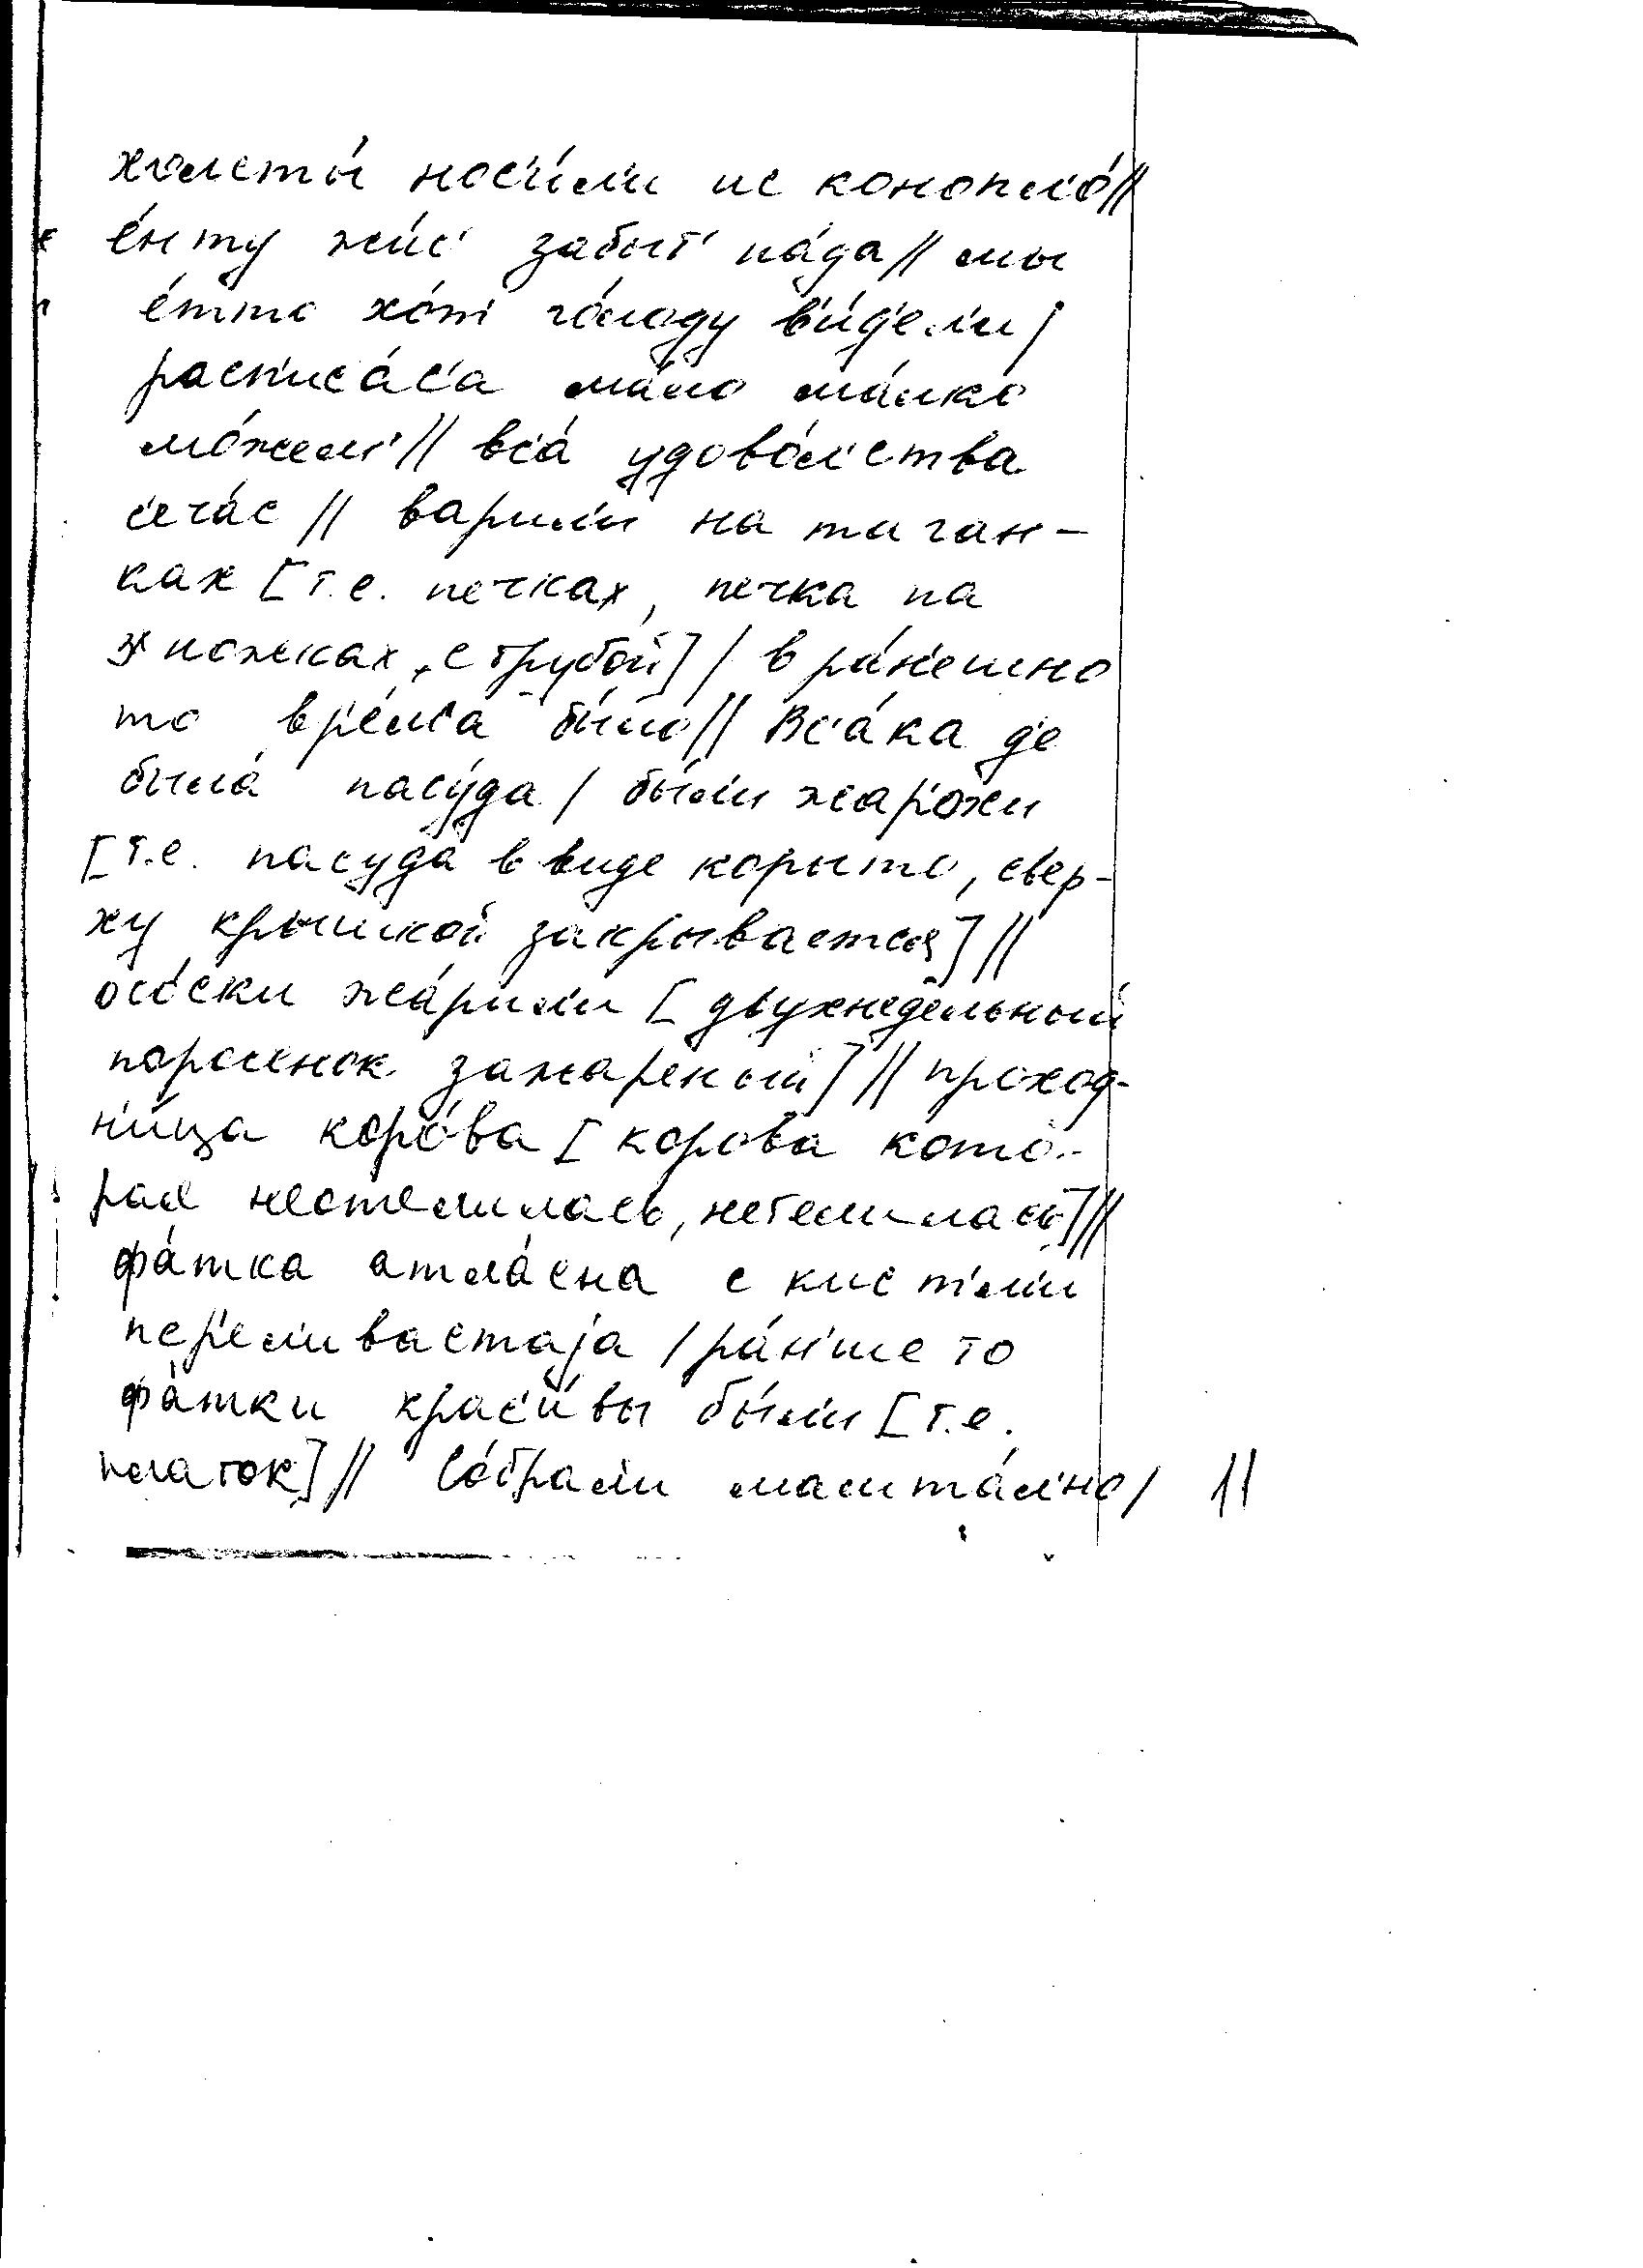 холсты́ нос'и́ли ис коноплó//
е́нту жис' забыт' на́да// мы
е́тто хо́т' го́лоду в'и́д'ели/
расп'иса́с'а ма́ло ма́лко
мо́жем// вс'а́ удово́л'ства
с'еча́с // варили на таган-
ках [т.е. печках, печка на
ножках, с трубой] / в ра́н'ешно
то вр'е́м'а бы́ло// Вс'а́ка д'е
была́ пасу́да / бы́ли жар'о́хи
[т.е. пасуда в виде корыто, свер-
ху крышкой закрывается] //
ос'о́ски жа́рили [двухнедельный
поросенок зажареный] // проход-
н'и́ца коро́ва [корова кото-
рая неотелилась, нетелилась]//
фа́тка атла́сна с кист'ам'и
пер'еливаетаjа / ра́н'ше то
фа́тки крас'и́вы бы́ли [т.е.
платок] // Со́брали машта́л'но/ 11